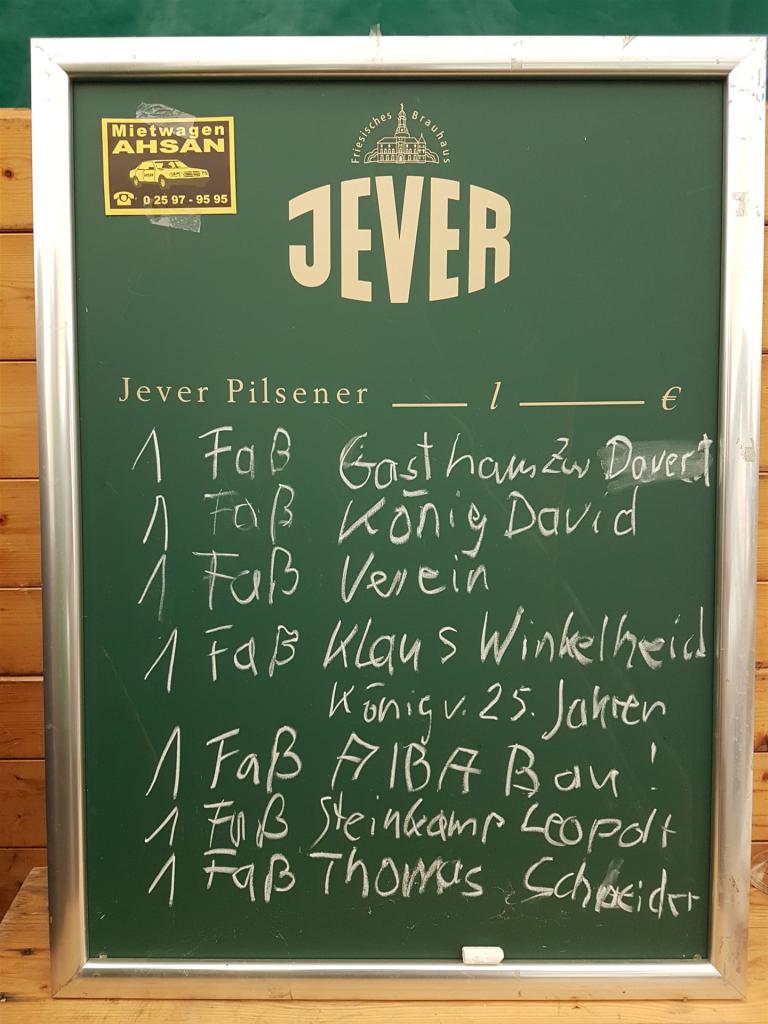 Mietwagen
AHSAN
AHSAN
0 25 97 - 95 95
Friesisches Brauhaus
JEVER
Jever Pilsener ____ l ____ €
1 Faß Gasthaus Zur Davert
1 Faß König David
1 Faß Verein
1 Faß Klaus Winkelheid
König v. 25. Jahren
1 Faß AIBA Bau !
1 Faß Steinkamp Leopolt
1 Faß Thomas Schneider